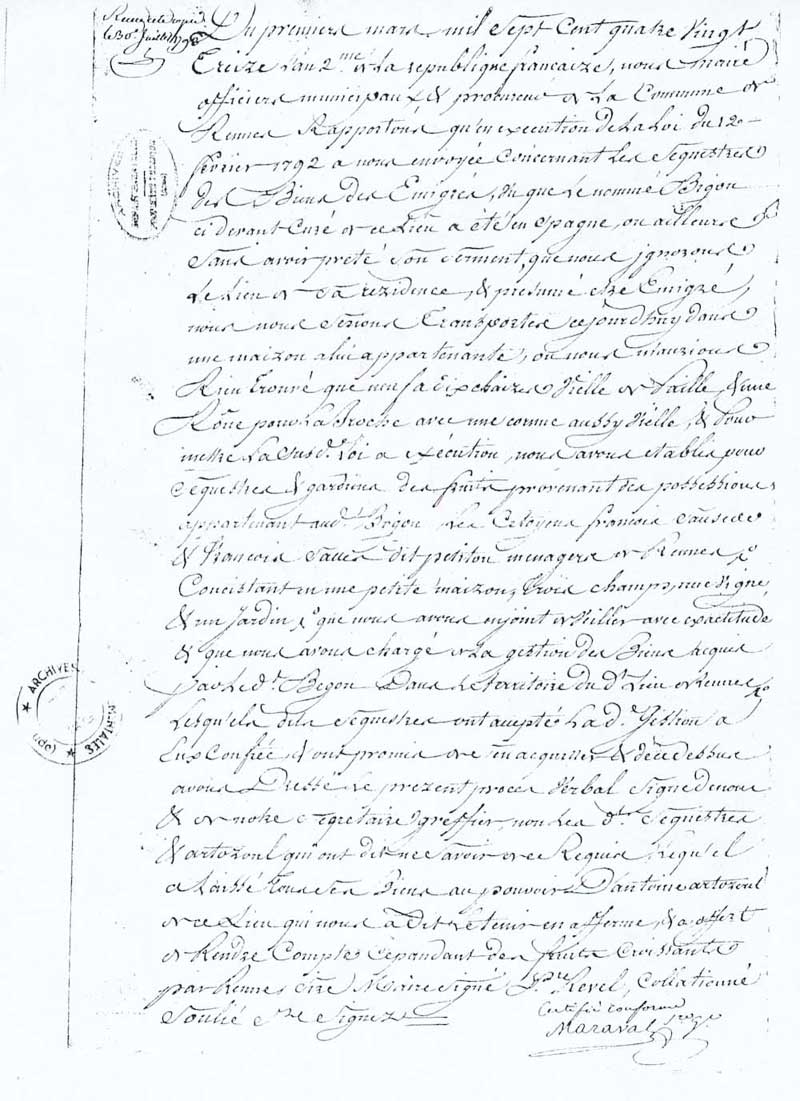 le 30 Juillet
Du premiers mars, mil sept Cent quatre vingt
Treize L'an 2.me de La republique francaize, nous maire
officiers municipaux & procureur de La Commune de
Rennes Rapportons qu'en execution de La Loi du 12
fevrier 1792 a nous envoyée Concernant Les sequestres
des Biens des Emigrés, vu que Le nommé Bigou
ci devant Curé de ce Lieu a été en Espagne, ou ailleurs
sans avoir preté son serment, que nous jgnorons
Le Lieu de sa rezidence, & présumé etre Emigré,
nous nous serions transportés cejourdhuy dans
une maizon a lui appartenante, ou nous n'aurions
Rien trouvé que six chaizes vielle de paille, & une
Roue pour La Broche avec une comme aussy vielle, & pour
mettre La susd. Loi a execution, nous avons etablis pour
sequestres & gardiens des fruits provenant des possessions
appartenant aud. Bigou Les Citoyens francois
& francois dit petiton menagers de Rennes
Concistant en une petite maizon, trois champs, une vigne,
& un Jardin, que nous avons enjoint de veiller avec exactitude
& que nous avons chargé de La gestion des Biens acquis
par Le d. Bigou Dans Le territoire du d. Lieu de Rennes
Lesquels dits sequestres ont accepté La d. gestion a
Eux Confiée, & ont promis de s'en acquitter & de ce dessus
avons Dressé Le prezent proces verbal signé de nous
& de notre segretaire greffier, non Les d. sequestres
& artozoul qui ont dit ne savoir de ce Requis, & qu'el
a Laissé tous ses Biens au pouvoir D'antoine artozoul
de ce Lieu qui nous a Dit Le tenir en afferme, & a offert
de Rendre Compte Cependant des fruits Croissants
par Rennes Maire signé, Revel, Collationné
Soulié signez
Certifié conforme
Maraval
ARCHIVES